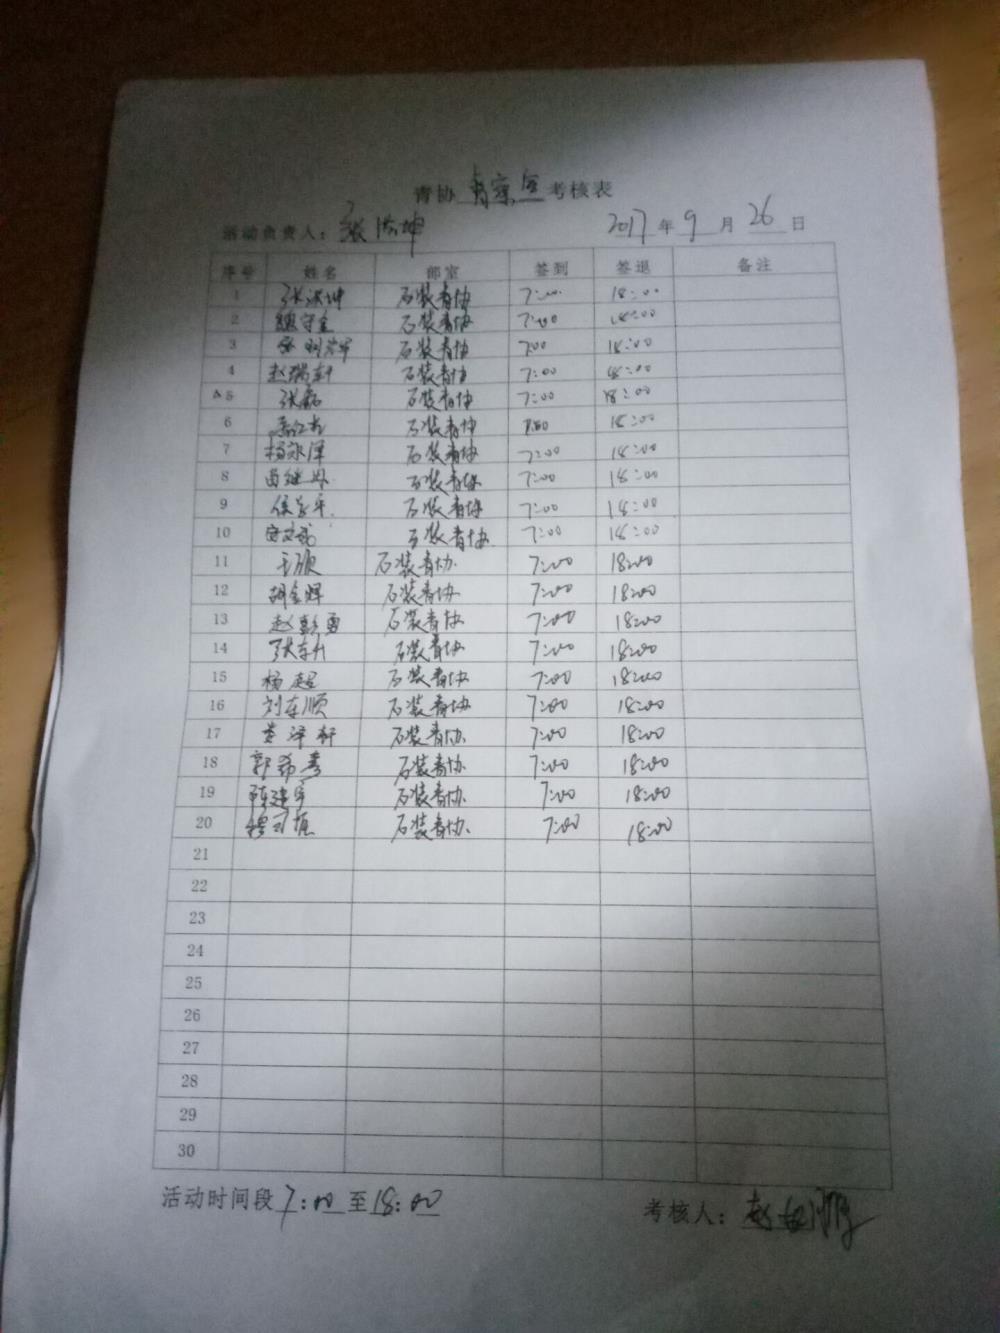 青协 考核表
活动负责人: 张洪坤 2017 年 9 月 26 日
序号 姓名 部室 签到 签退 备注
1 张洪坤 石装青协 7:00 18:00
2 魏守金 石装青协 7:00 18:00
3 石装青协 7:00 18:00
4 赵瑞轩 石装青协 7:00 18:00
5 张磊 石装青协 7:00 18:00
6 石装青协 7:00 18:00
7 杨永泽 石装青协 7:00 18:00
8 苗继 石装青协 7:00 18:00
9 石装青协 7:00 18:00
10 石装青协 7:00 18:00
11 王顺 石装青协 7:00 18:00
12 胡金辉 石装青协 7:00 18:00
13 赵彭勇 石装青协 7:00 18:00
14 张东升 石装青协 7:00 18:00
15 杨超 石装青协 7:00 18:00
16 刘存顺 石装青协 7:00 18:00
17 石装青协 7:00 18:00
18 郭希彦 石装青协 7:00 18:00
19 陈建宇 石装青协 7:00 18:00
20 石装青协 7:00 18:00
21
22
23
24
25
26
27
28
29
30
活动时间段 7:00 至 18:00 考核人: